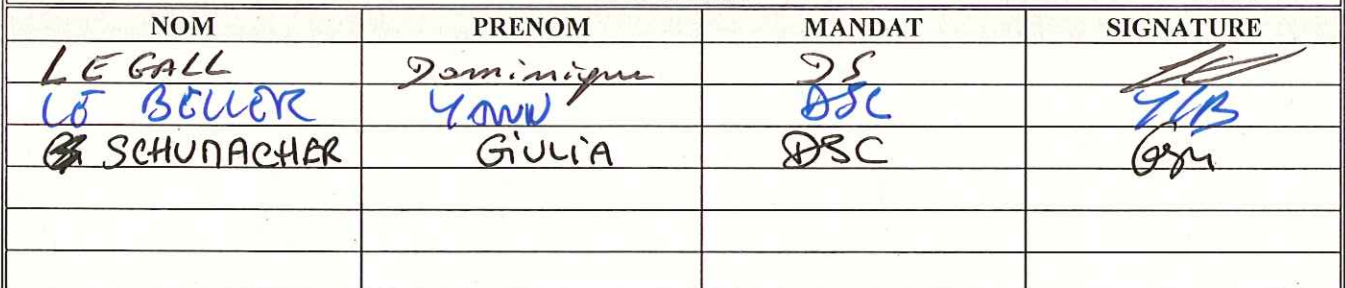 NOM PRENOM MANDAT SIGNATURE
LE GALL Dominique DS
LE BELLER YANN DSC YLB
SCHUMACHER GIULIA DSC